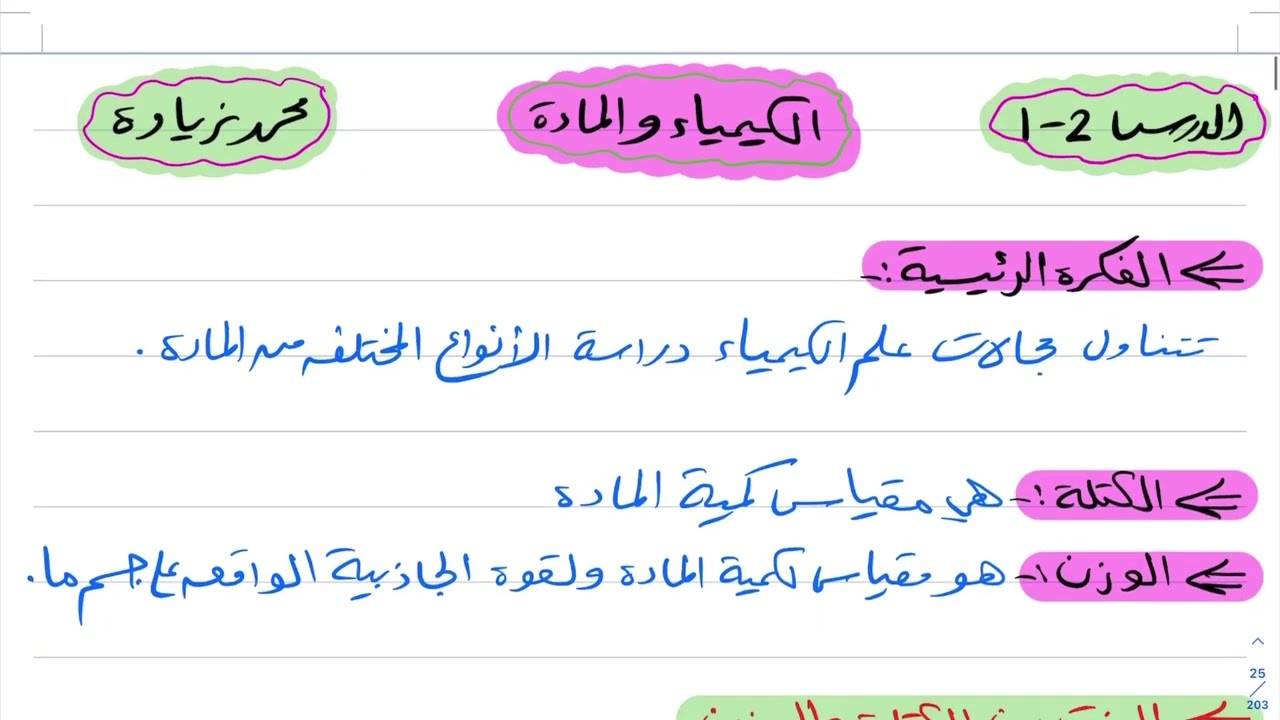 الدرس 2-1
الكيمياء والمادة
محمد زيادة
الفكرة الرئيسية :-
تتناول مجالات علم الكيمياء دراسة الأنواع المختلفه من المادة .
الكتلة :- هي مقياس كمية المادة
الوزن :- هو مقياس لكمية المادة ولقوة الجاذبية الواقعه على جسم ما .
25
203